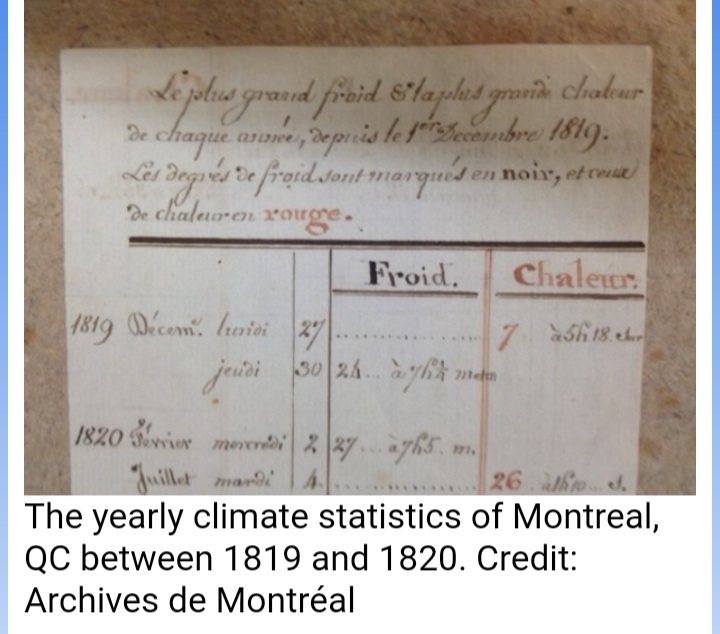 Le plus grand froid & la plus grande chaleur
de chaque année, depuis le 1er Decembre 1819.
Les degrés de froid sont marqués en noir, et ceux
de chaleur en rouge.
Froid. Chaleur.
1819 Décemr. lundi 27 .................... 7 .. à 5h 18.
jeudi 30 24 ... à 7h
1820 Février mercredi 2 27 ... à 7h5. m.
Juillet mardi 4. .................... 26 . à s.
The yearly climate statistics of Montreal,
QC between 1819 and 1820. Credit:
Archives de Montréal